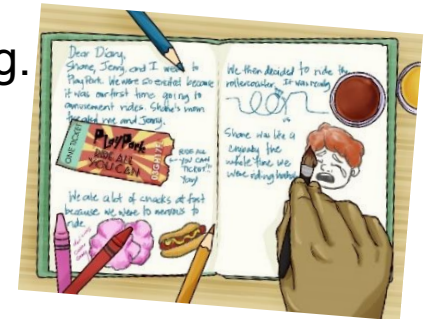 g.
Dear Diary,
Shane, Jenny, and I to
PlayPark. We were so excited because
it was our first time going to
amusement rides. Shane's mom
me and Jenny.
ONE TICKET
PlayPark
RIDE ALL
YOU CAN
RIDE ALL
YOU CAN
TICKET!
Yay!
We ate a lot of snacks at first
because we were to nervous to
ride.
We then decided to ride the
rollercoaster. It was really
Shane was like a
crybaby the
whole time we
were riding